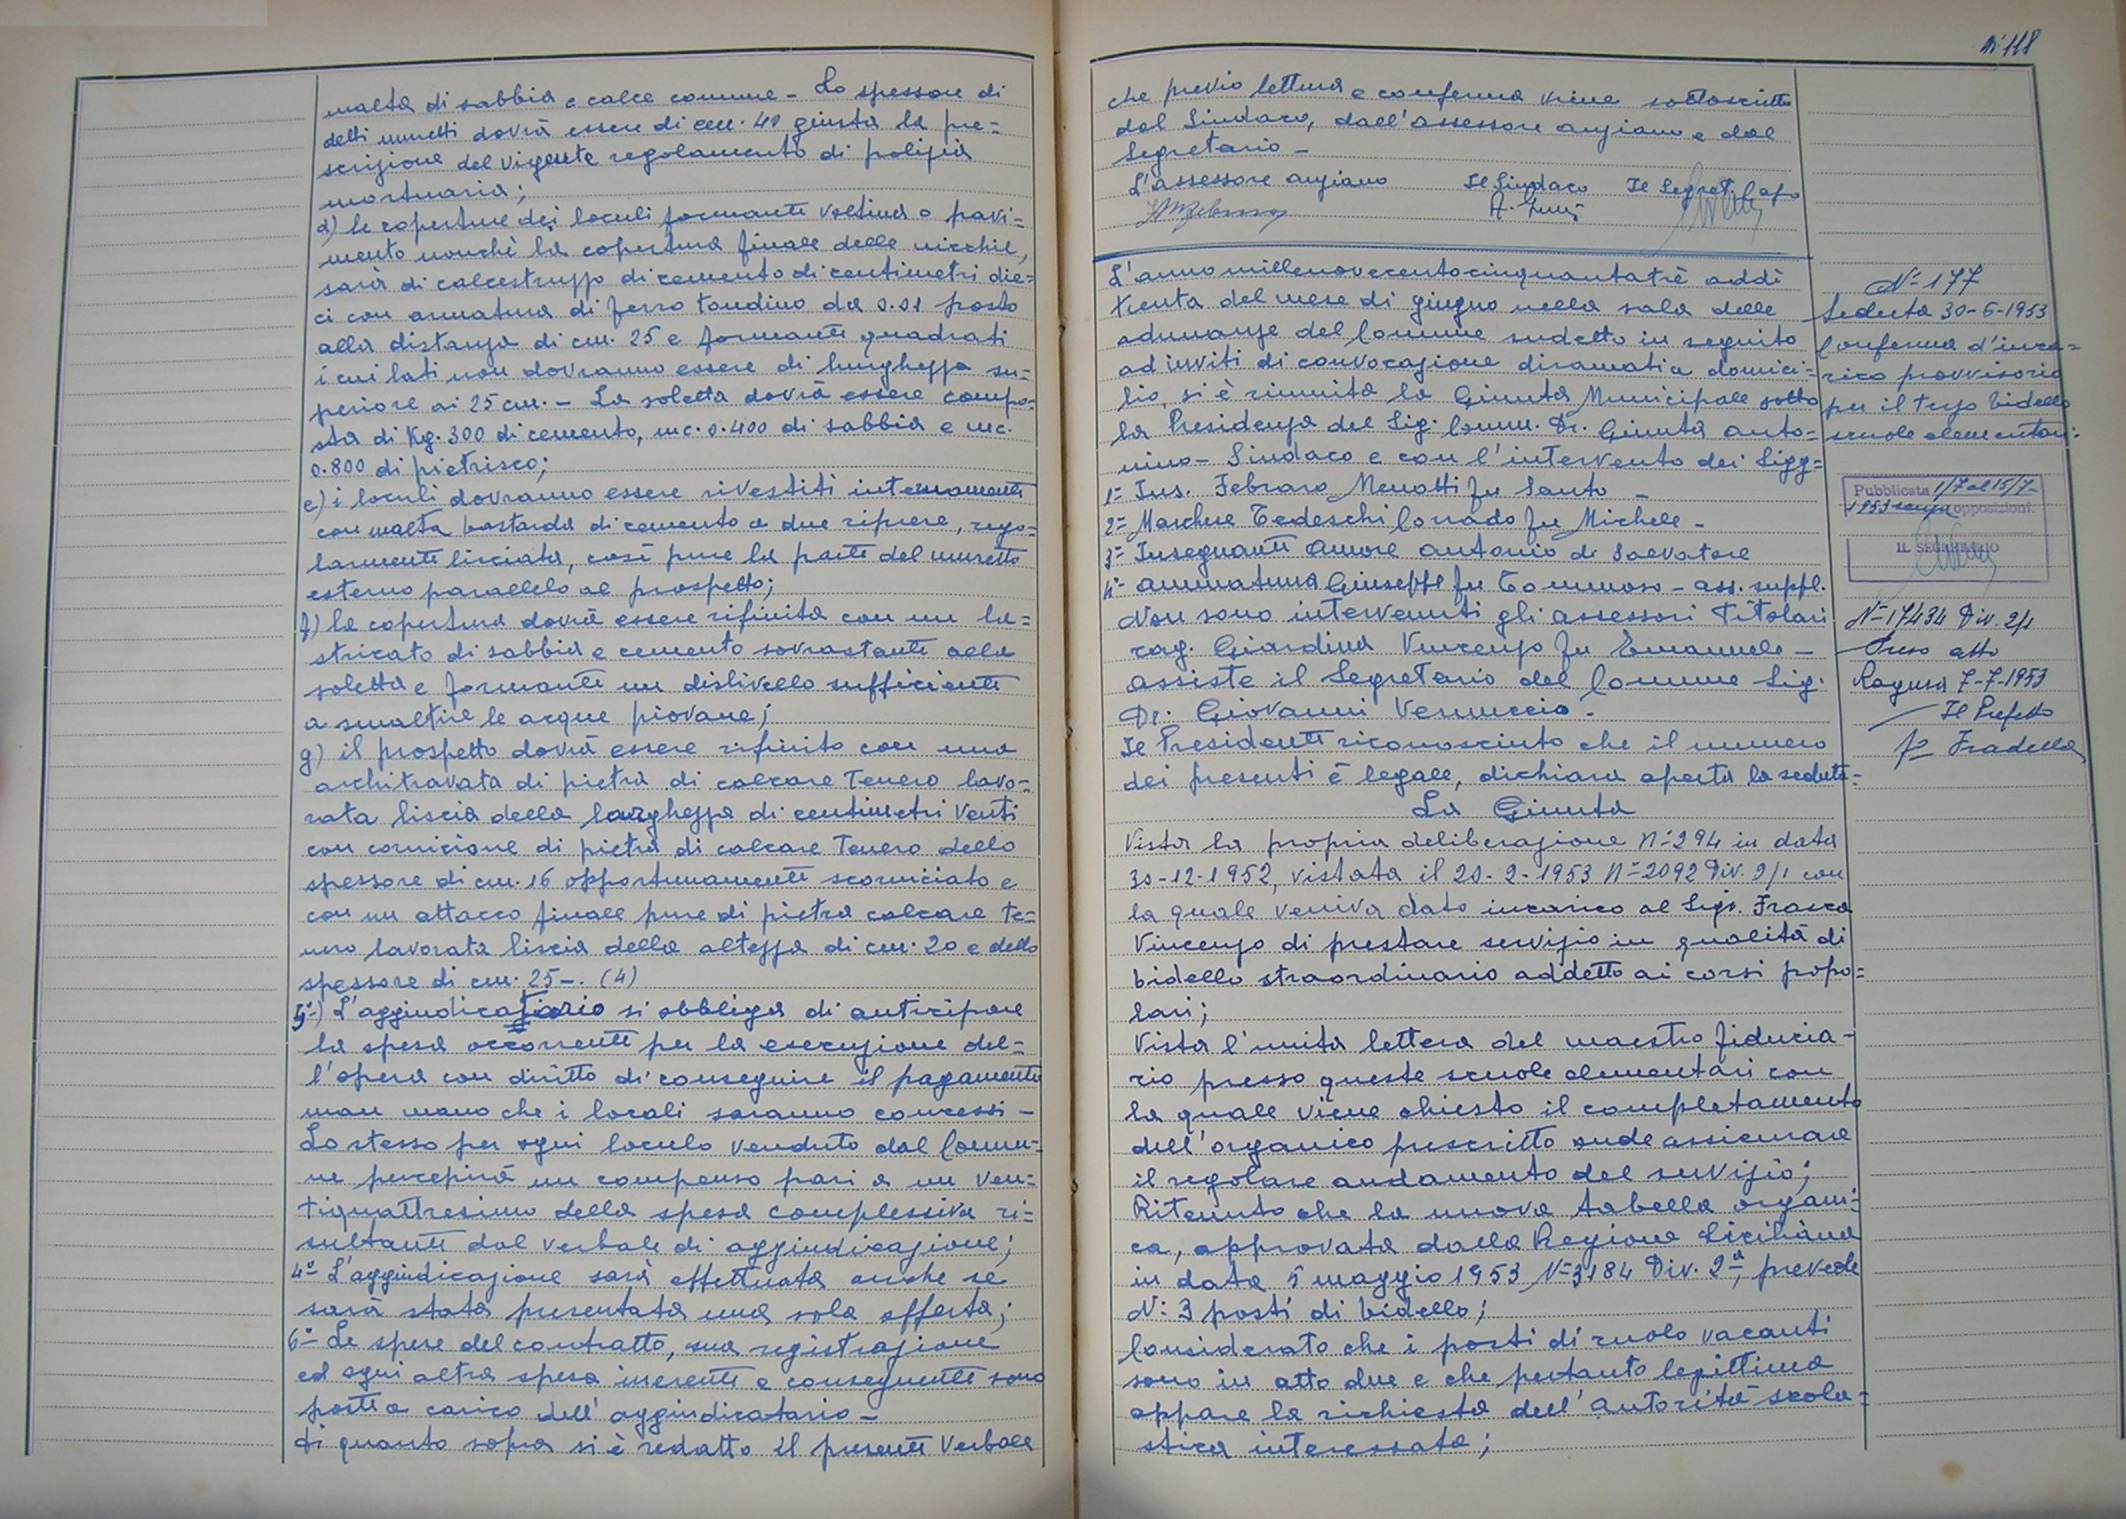 malta di sabbia e calce comune - Lo spessore di
detti muretti dovrà essere di cm. 40 giusta la pre=
scrizione del vigente regolamento di polizia
mortuaria;
d) le coperture dei loculi formante voltina o pavi=
mento nonchè la copertura finale delle nicchie,
sarà di calcestruzzo di cemento di centimetri die=
ci con armatura di ferro tondino da 0.01 posto
alla distanza di cm. 25 e formanti quadrati
i cui lati non dovranno essere di lunghezza su=
periore ai 25 cm. - La soletta dovrà essere compo=
sta di Kg. 300 di cemento, mc. 0.400 di sabbia e mc.
0.800 di pietrisco;
e) i loculi dovranno essere rivestiti internamente
con malta bastarda di cemento a due riprese, rego=
larmente lisciata, così pure la parte del muretto
esterno parallelo al prospetto;
f) la copertura dovrà essere rifinita con un la=
stricato di sabbia e cemento sovrastante alla
soletta e formante un dislivello sufficiente
a smaltire le acque piovane;
g) il prospetto dovrà essere rifinito con una
architravata di pietra di calcare tenero lavo=
rata liscia della larghezza di centimetri venti
con cornicione di pietra di calcare tenero dello
spessore di cm. 16 opportunamente scorniciato e
con un attacco finale pure di pietra calcare te=
nero lavorata liscia della altezza di cm. 20 e dello
spessore di cm. 25 -. (4)
5°-) L'aggiudicatario si obbliga di anticipare
la spesa occorrente per la esecuzione del=
l'opera con diritto di conseguire il pagamento
man mano che i locali saranno concessi -
Lo stesso per ogni loculo venduto dal Comu=
ne percepirà un compenso pari a un ven=
tiquattresimo della spesa complessiva ri=
sultante dal verbale di aggiudicazione;
4°- L'aggiudicazione sarà effettuata anche se
sarà stata presentata una sola offerta;
6°- Le spese del contratto, sua registrazione
ed ogni altra spesa inerente e conseguente sono
poste a carico dell'aggiudicatario -
Di quanto sopra si è redatto il presente verbale
N° 118
che previo lettura e conferma viene sottoscritto
dal Sindaco, dall'assessore anziano e dal
Segretario -
L'assessore anziano Il Sindaco Il Segret. Capo
L'anno millenovecentocinquantatrè addì
trenta del mese di giugno nella sala delle
adunanze del Comune sudetto in seguito
ad inviti di convocazione diramati a domici=
lio, si è riunita la Giunta Municipale sotto
la Presidenza del Sig. Comm. Dr. Giunta Anto=
nino - Sindaco e con l'intervento dei Sigg=
1= Ins. Febraro Menotti fu Santo -
2= Marchese Tedeschi Corrado fu Michele -
3= Insegnante Amore Antonio di Salvatore
4= Ammatuna Giuseppe fu Tommaso - ass. suppl.
Non sono intervenuti gli assessori titolari
rag. Giardina Vincenzo fu Emanuele -
assiste il Segretario del Comune Sig.
Dr. Giovanni Vernuccio -
Il Presidente riconosciuto che il numero
dei presenti è legale, dichiara aperta la seduta=
La Giunta
Vista la propria deliberazione N=294 in data
30-12-1952, vistata il 20-2-1953 N=2092 Div. 2/1 con
la quale veniva dato incarico al Sig. Frasca
Vincenzo di prestare servizio in qualità di
bidello straordinario addetto ai corsi popo=
lari;
Vista l'unita lettera del maestro fiducia=
rio presso queste scuole elementari con
la quale viene chiesto il completamento
dell'organico prescritto onde assicurare
il regolare andamento del servizio;
Ritenuto che la nuova tabella organi=
ca, approvata dalla Regione Siciliana
in data 5 maggio 1953 N=3184 Div. 2ª, prevede
N: 3 posti di bidello;
Considerato che i posti di ruolo vacanti
sono in atto due e che pertanto legittima
appare la richiesta dell'autorità scola=
stica interessata;
N= 177
Seduta 30-6-1953
Conferma d'inca=
rico provvisorio
per il terzo bidello
scuole elementari=
Pubblicata 1/7 al 15/7-
1953 senza opposizioni
IL SEGRETARIO
N=17434 Div. 2/1
Preso atto
Ragusa 7-7-1953
Il Prefetto
f= Fradella